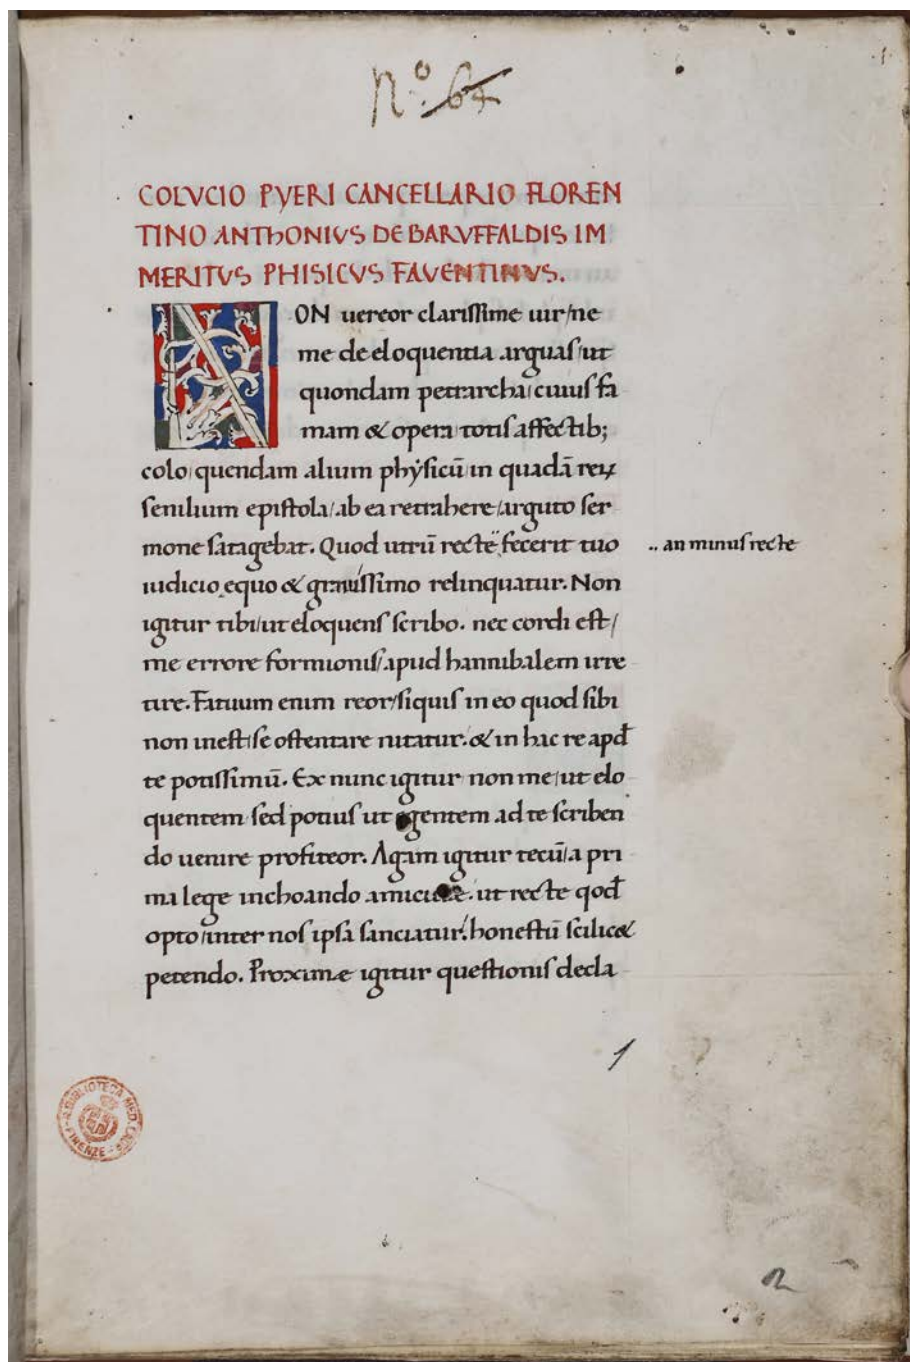 Nº. 64
COLVCIO PYERI CANCELLARIO FLOREN
TINO ANThONIVS DE BARVFFALDIS IM
MERITUS PHISICVS FAVENTINVS.
NON uereor clarissime uir/ne
me de eloquentia arguas/ut
quondam petrarcha/cuius fa
mam & opera totis affectib;
colo/quendam alium phẏsicū in quadā reꝝ
senilium epistola/ab ea retrahere/arguto ser
mone satagebat. Quod utrū recte fecerit tuo
.. an minus recte
iudicio equo & grauissimo relinquatur. Non
igitur tibi/ut eloquens scribo. nec cordi est/
me errore formionis/apud hannibalem irre
tire. Fatuum enim reor/siquis in eo quod sibi
non inest/se ostentare nitatur. & in hac re apđ
te potissimū. Ex nunc igitur non me/ut elo
quentem sed potius ut egentem ad te scriben
do uenire profiteor. Agam igitur tecū/a pri
ma lege inchoando amicitiæ. ut recte qođ
opto/inter nos ipsa sanciatur. honestū scilic&
petendo. Proximæ igitur questionis decla
1
R. BIBLIOTECA MED. LAUR.
FIRENZE
2